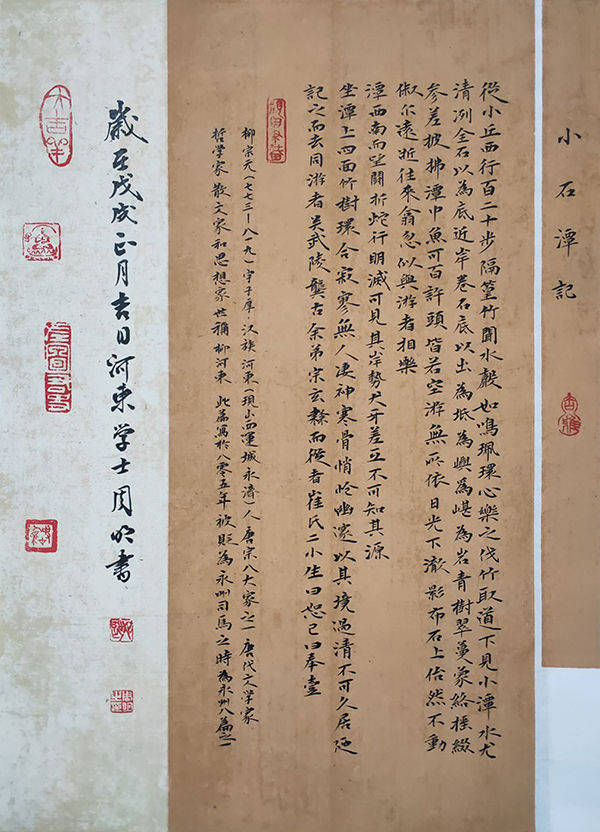 小石潭記
從小丘西行百二十步隔篁竹聞水聲如鳴珮環心樂之伐竹取道下見小潭水尤
清冽全石以為底近岸卷石底以出為坻為嶼為嵁為岩青樹翠蔓蒙絡搖綴
參差披拂潭中魚可百許頭皆若空游無所依日光下澈影布石上佁然不動
俶尔遠逝往來翕忽似與游者相樂
潭西南而望鬥折蛇行明滅可見其岸勢犬牙差互不可知其源
坐潭上四面竹樹環合寂寥無人凄神寒骨悄愴幽邃以其境過清不可久居廼
記之而去同游者吴武陵龔古余弟宗玄隸而從者崔氏二小生曰恕己曰奉壹
柳宗元(七七三—八一九)字子厚汉族河東(現山西運城永濟)人唐宗八大家之一唐代文学家
哲学家散文家和思想家世稱柳河東 此篇寫於八零五年被贬為永州司馬之時為永州八篇之一
歲在戊戌正月吉日河東学士周明書
大吉羊